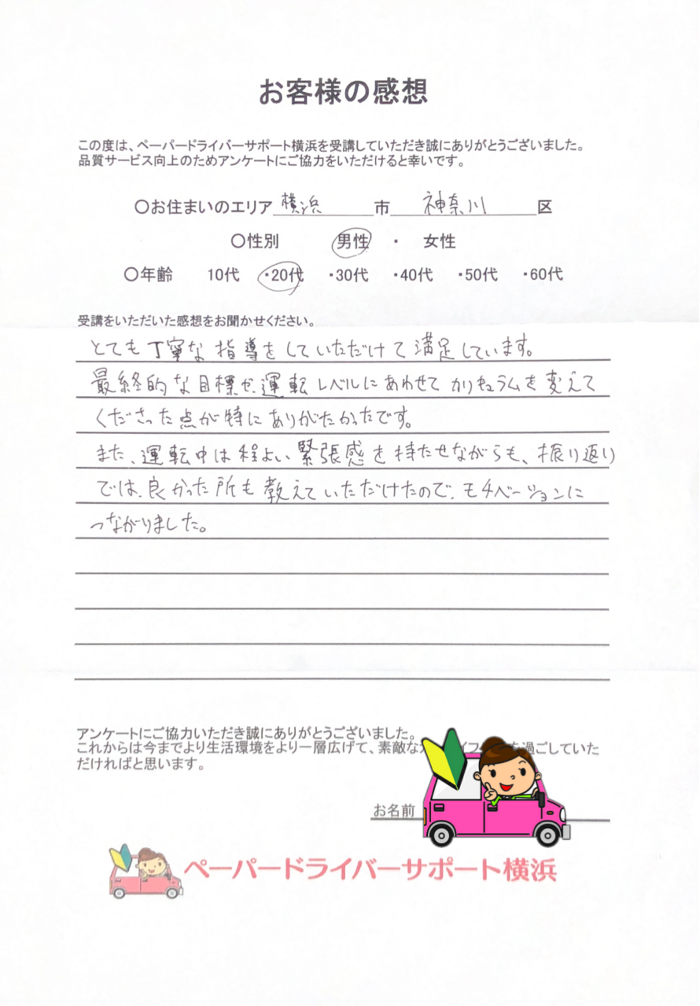 お客様の感想
この度は、ペーパードライバーサポート横浜を受講していただき誠にありがとうございました。
品質サービス向上のためアンケートにご協力をいただけると幸いです。
〇お住まいのエリア 横浜 市 神奈川 区
〇性別 男性 ・ 女性
〇年齢 10代 ・20代 ・30代 ・40代 ・50代 ・60代
受講をいただいた感想をお聞かせください。
とても丁寧な指導をしていただけて満足しています。
最終的な目標や運転レベルにあわせてカリキュラムを変えて
くださった点が特にありがたかったです。
また、運転中は程よい緊張感を持たせながらも、振り返り
では、良かった所も教えていただけたので、モチベーションに
つながりました。
アンケートにご協力いただき誠にありがとうございました。
これからは今までより生活環境をより一層広げて、素敵な を過ごしていた
だければと思います。
お名前
ペーパードライバーサポート横浜